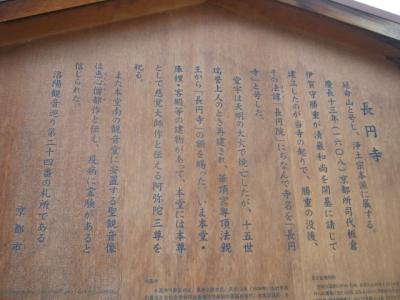 長円寺
延命山と号し、浄土宗本派に属する。
慶長十三年(一六〇八)京都所司代板倉
伊賀守勝重が清巌和尚を開基に請じて
建立したのが当寺の起りで、勝重の没後、
その法諱「長円院」にちなんで寺名を「長円
寺」と号した。
堂宇は天明の大火で焼亡したが、十五世
瑞誉上人のとき再建され、華頂宮尊頂法親
王から「長円寺」の額を賜った。いま本堂・
庫裡・客殿等の建物があって、本堂には本尊
として慈覚大師作と伝える阿弥陀三尊を
祀る。
また本堂南の観音堂に安置する聖観音像
は恵心僧都作と伝え、疫病に霊験があると
信じられた。
洛陽観音巡り第二十四番の札所である。
京都市